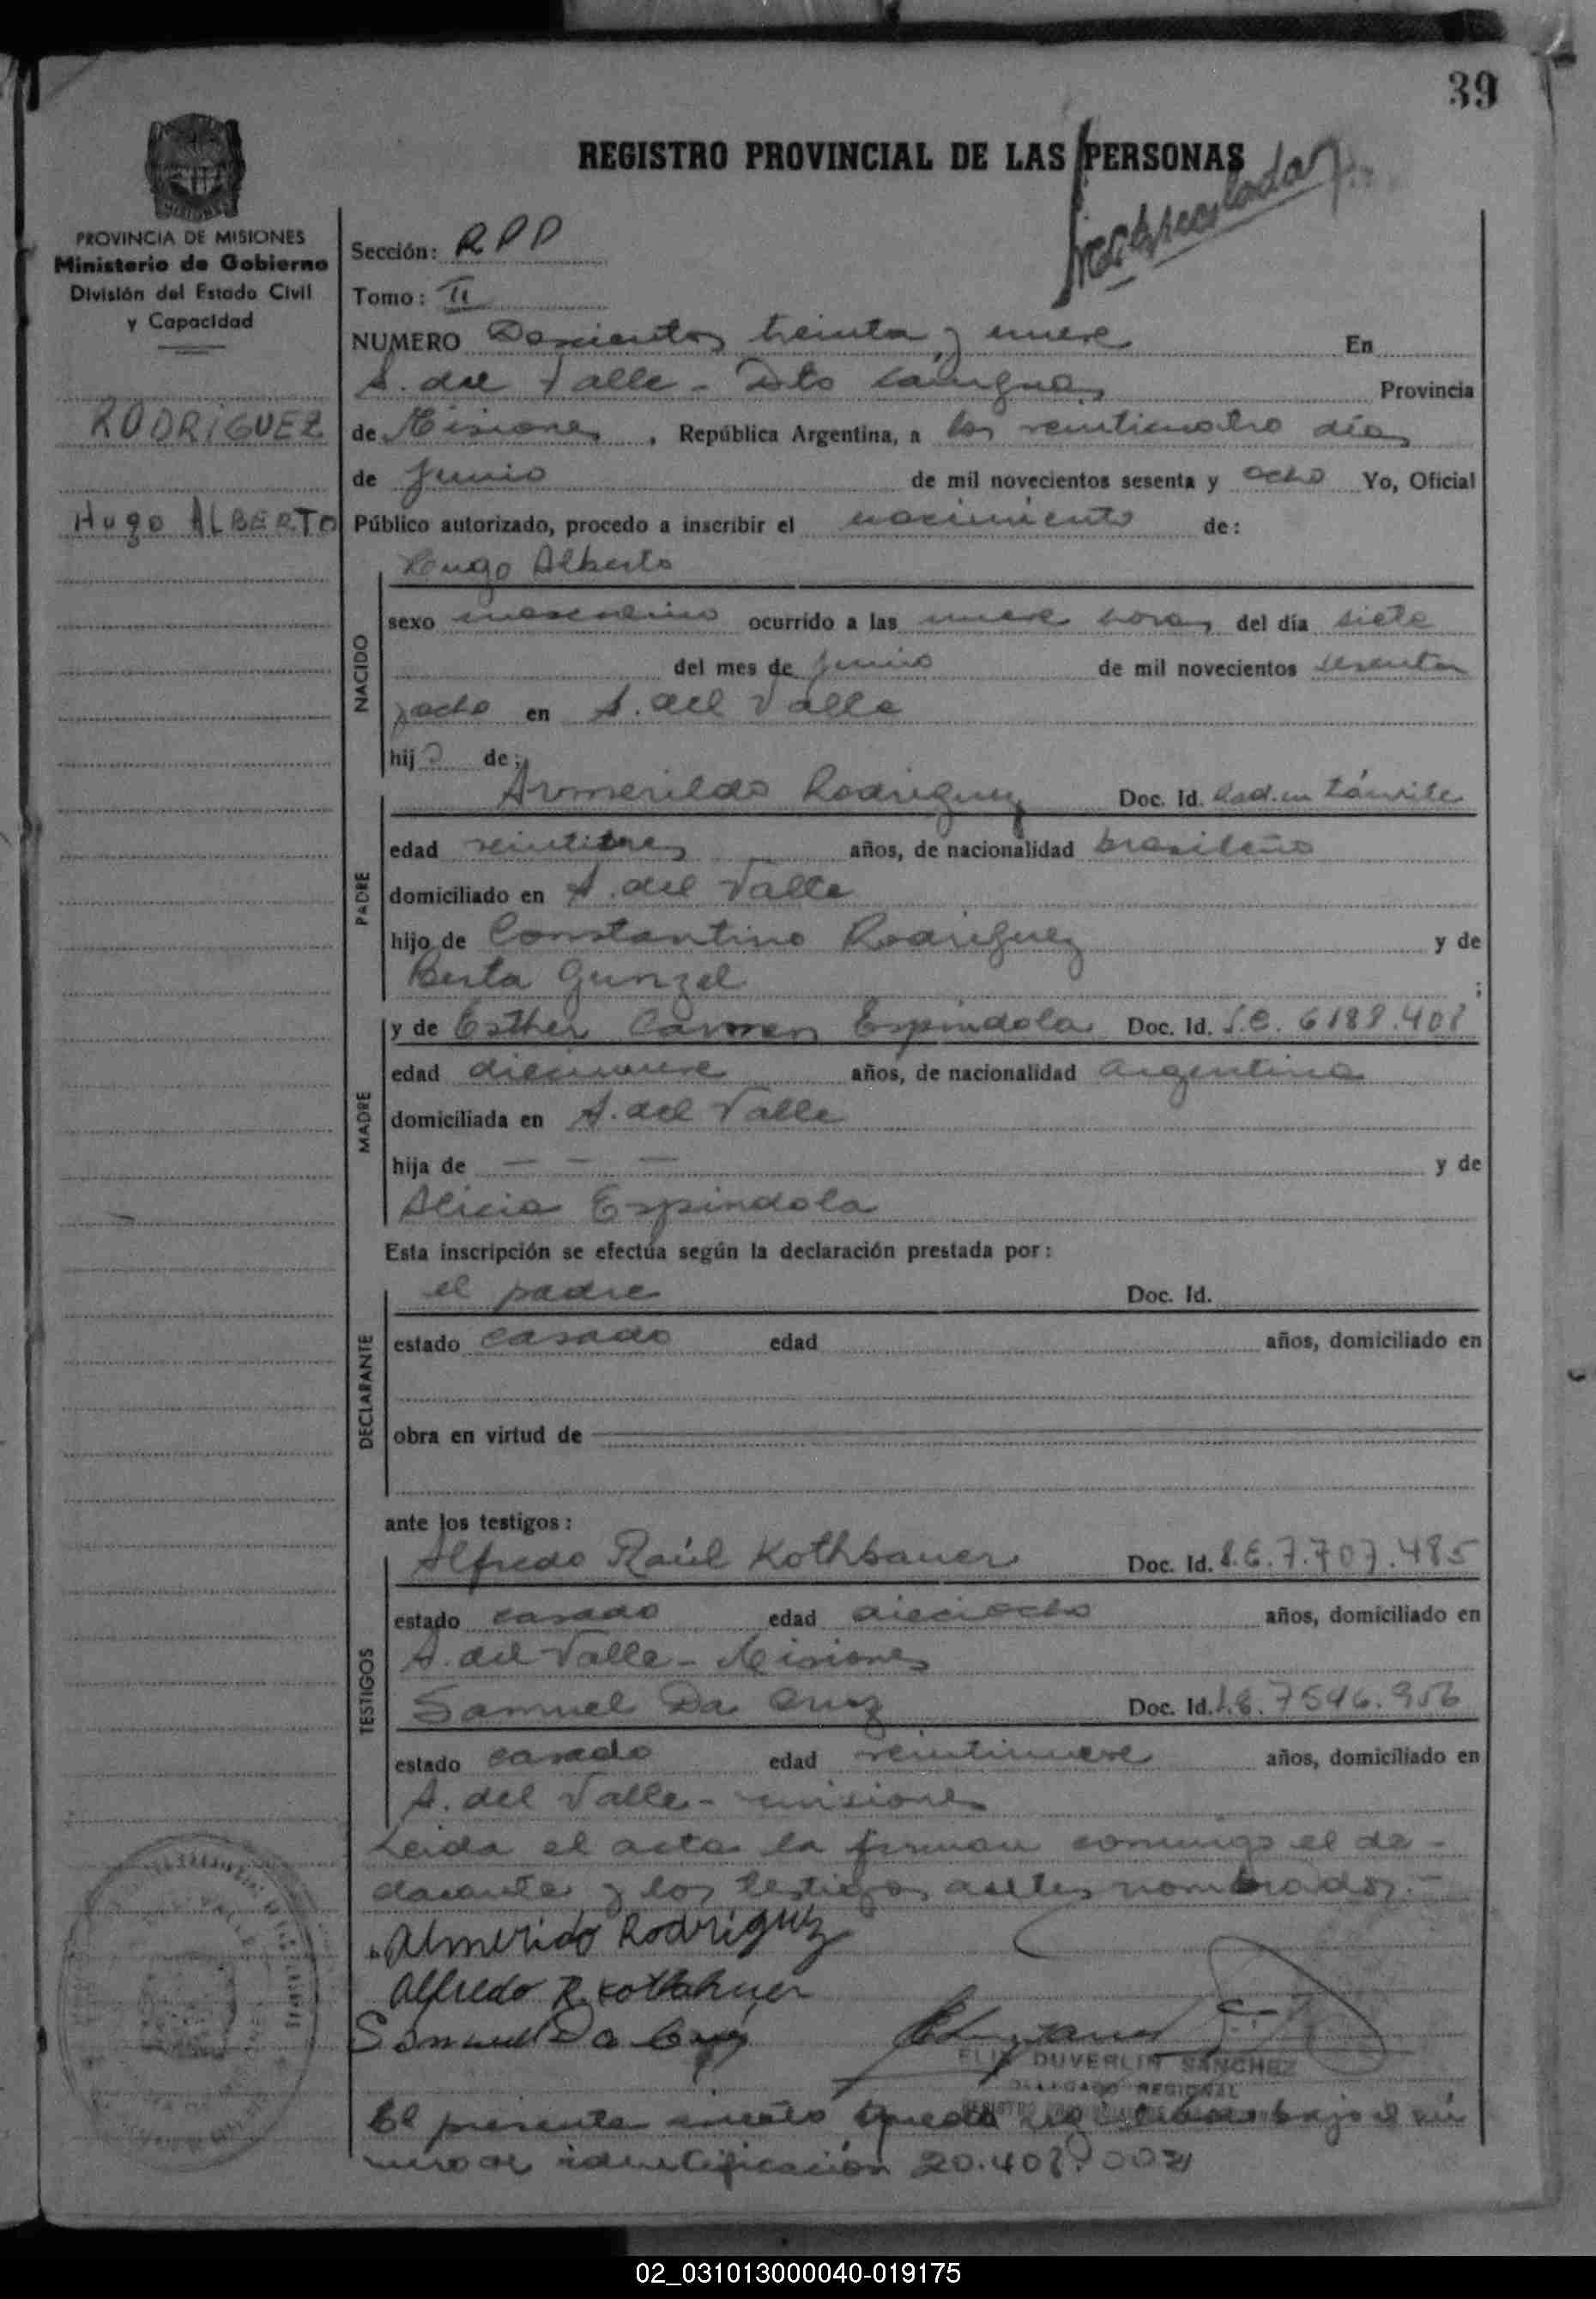 39
REGISTRO PROVINCIAL DE LAS PERSONAS
PROVINCIA DE MISIONES
Ministerio de Gobierno
División del Estado Civil
y Capacidad
RODRIGUEZ
Hugo ALBERTO
Sección: RPP
Tomo: II
NUMERO Doscientos treinta y nueve En
A. del Valle - Dto Cainguas Provincia
de Misiones, República Argentina, a los veinticuatro días
de Junio de mil novecientos sesenta y ocho Yo, Oficial
Público autorizado, procedo a inscribir el nacimiento de:
NACIDO
Hugo Alberto
sexo masculino ocurrido a las nueve horas del día siete
del mes de junio de mil novecientos sesenta
y ocho en A. del Valle
hijo de:
PADRE
Armerildo Rodriguez Doc. Id. Rad. en trámite
edad veintitres años, de nacionalidad brasileño
domiciliado en A. del Valle
hijo de Constantino Rodriguez y de
Berta Gunzel ;
MADRE
y de Esther Carmen Espindola Doc. Id. L.C. 6188.401
edad diecinueve años, de nacionalidad argentina
domiciliada en A. del Valle
hija de — — — y de
Alicia Espindola
Esta inscripción se efectúa según la declaración prestada por:
DECLARANTE
el padre Doc. Id.
estado casado edad años, domiciliado en
obra en virtud de
ante los testigos:
TESTIGOS
Alfredo Raúl Kothbauer Doc. Id. L.E. 7.707.485
estado casado edad dieciocho años, domiciliado en
A. del Valle - Misiones
Samuel Da Cruz Doc. Id. L.E. 7546.956
estado casado edad veintinueve años, domiciliado en
A. del Valle - misiones
Leida el acta la firman conmigo el de-
clarante y los testigos antes nombrados.-
Almerido Rodriguez
Alfredo R. Kothbauer
Samuel Da Cruz
DUVERLIN SANCHEZ
DELEGADO REGIONAL
El presente queda bajo el nú
mero de identificación 20.408.002
02_031013000040-019175